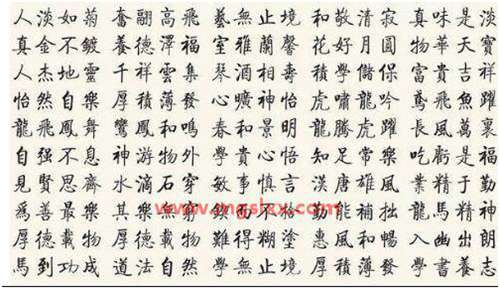 人淡如菊 奮翮高飛 藝無止境 和敬清寂 真味是淡
真金不鍍 養德澤福 室雅蘭馨 花好月圓 物華天寶
人杰地靈 千祥雲集 琴酒相壽 積學儲保 富貴吉祥
怡然自樂 厚積薄發 心曠神怡 虎嘯龍吟 鳶飛魚躍
龍飛鳳舞 鸞鳳和鳴 春和景明 龍騰虎躍 長風萬裏
自强不息 神游物外 學貴心悟 知足常樂 吃虧是福
見賢思齊 水滴石穿 敏事慎言 漢唐雄風 業精于勤
www.mgslxx.com
爲善最樂 其樂 勤能補拙 龍馬精神
厚德載物 厚德載物 難得糊塗 惠風和暢 入幽出朗
馬到功成 道法自然 學無止境 厚積薄發 學書養志